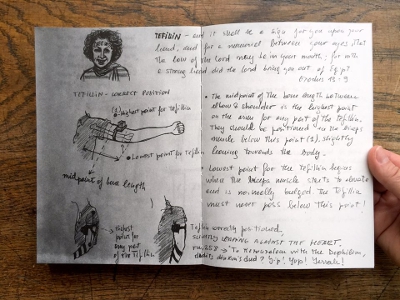 TEFILIN - and it shall be a sign for you upon your
hand, and for a memorial between your eyes, that
the law of the Lord may be in your mouth; for with
a strong hand did the Lord bring you out of Egypt
Exodus 13:9
TEFILLIN - CORRECT POSITION
(1) Highest point for Tefillin
• Lowest point for Tefillin
midpoint of bone length
• The midpoint of the bone length between
elbow & shoulder is the highest point
on the arm for any part of the Tefillin.
They should be positioned on the biceps
muscle below this point (1), slightly
leaning towards the body.
• Lowest point for the Tefillin begins
where the biceps muscle starts to elevate
and is normally bulged. The Tefillin
must never pass below this point!
Highest
point for
any part
of the Tefillin
Tefilin correctly positioned,
slightly LEANING AGAINST THE HEART.